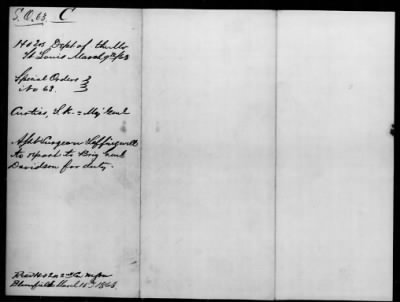 S.O. 63. C
Hd Qrs Dept of the Mo
St Louis March 9th/63
Special Orders }
No 63. }
Curtis, S.R. = Maj Genl
Asst Surgeon Leffingwell
to report to Brig Genl
Davidson for duty.
Recd Hd Qrs 2nd
Bloomfield March 15th 1863